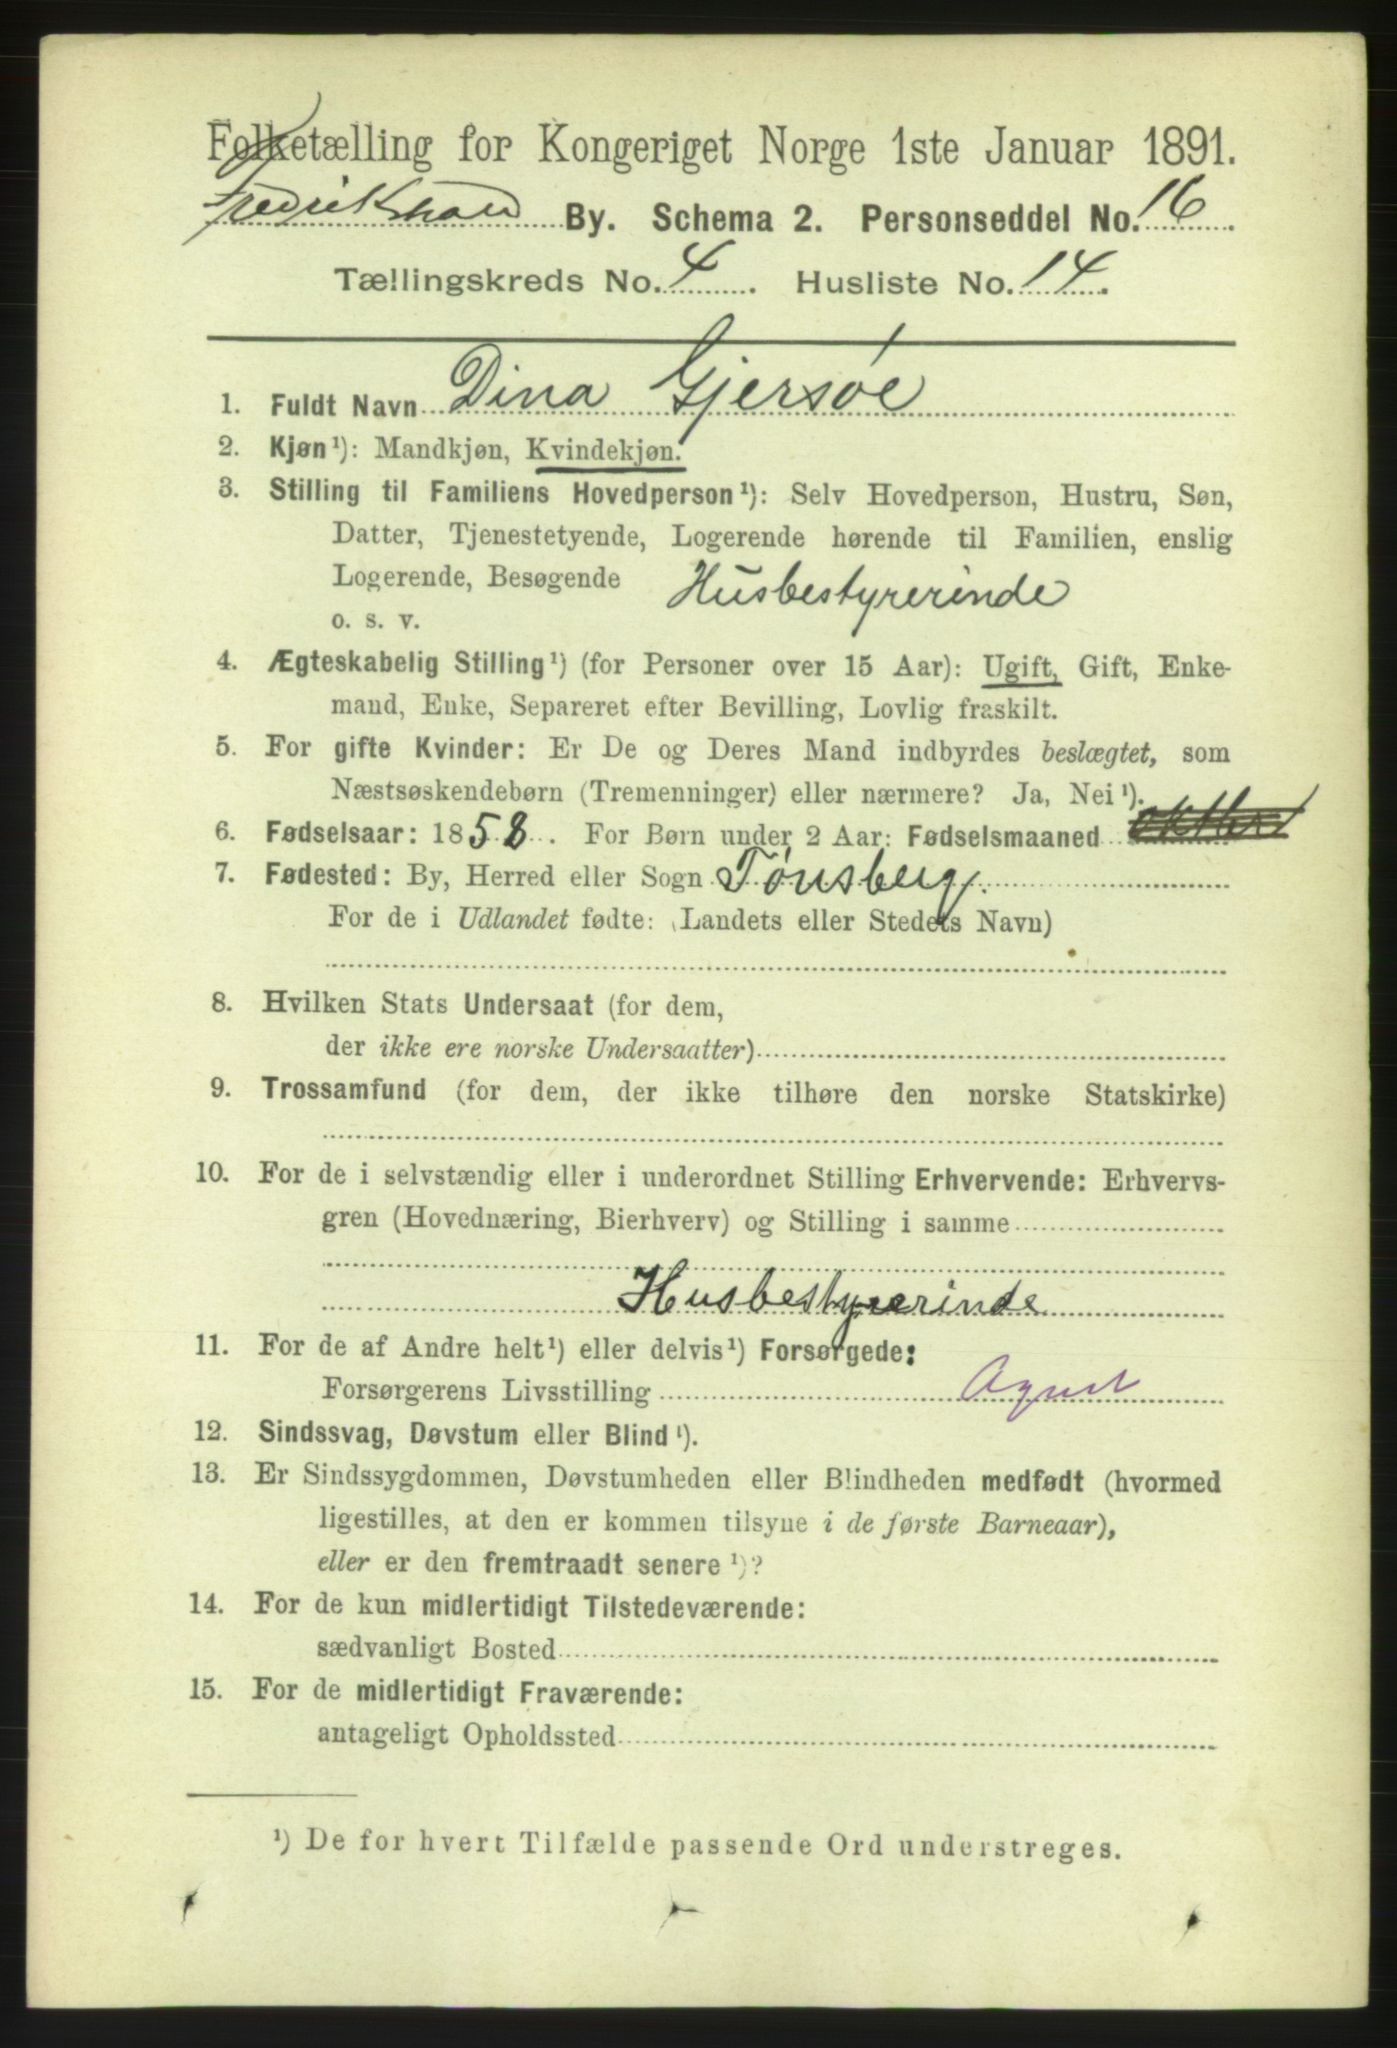 Folketælling for Kongeriget Norge 1ste Januar 1891.
Fredrikshald By. Schema 2. Personseddel No. 16.
Tællingskreds No. 4. Husliste No. 14.
1. Fuldt Navn Dina Gjersøe
2. Kjøn¹): Mandkjøn, Kvindekjøn.
3. Stilling til Familiens Hovedperson¹): Selv Hovedperson, Hustru, Søn,
Datter, Tjenestetyende, Logerende hørende til Familien, enslig
Logerende, Besøgende Husbestyrerinde
o. s. v.
4. Ægteskabelig Stilling¹) (for Personer over 15 Aar): Ugift, Gift, Enke-
mand, Enke, Separeret efter Bevilling, Lovlig fraskilt.
5. For gifte Kvinder: Er De og Deres Mand indbyrdes beslægtet, som
Næstsøskendebørn (Tremenninger) eller nærmere? Ja, Nei¹).
6. Fødselsaar: 1858. For Børn under 2 Aar: Fødselsmaaned
7. Fødested: By, Herred eller Sogn Tønsberg.
For de i Udlandet fødte: (Landets eller Stedets Navn)
8. Hvilken Stats Undersaat (for dem,
der ikke ere norske Undersaatter)
9. Trossamfund (for dem, der ikke tilhøre den norske Statskirke)
10. For de i selvstændig eller i underordnet Stilling Erhvervende: Erhvervs-
gren (Hovednæring, Bierhverv) og Stilling i samme
Husbestyrerinde
11. For de af Andre helt¹) eller delvis¹) Forsørgede:
Forsørgerens Livsstilling
12. Sindssvag, Døvstum eller Blind¹).
13. Er Sindssygdommen, Døvstumheden eller Blindheden medfødt (hvormed
ligestilles, at den er kommen tilsyne i de første Barneaar),
eller er den fremtraadt senere¹)?
14. For de kun midlertidigt Tilstedeværende:
sædvanligt Bosted
15. For de midlertidigt Fraværende:
antageligt Opholdssted
¹) De for hvert Tilfælde passende Ord understreges.